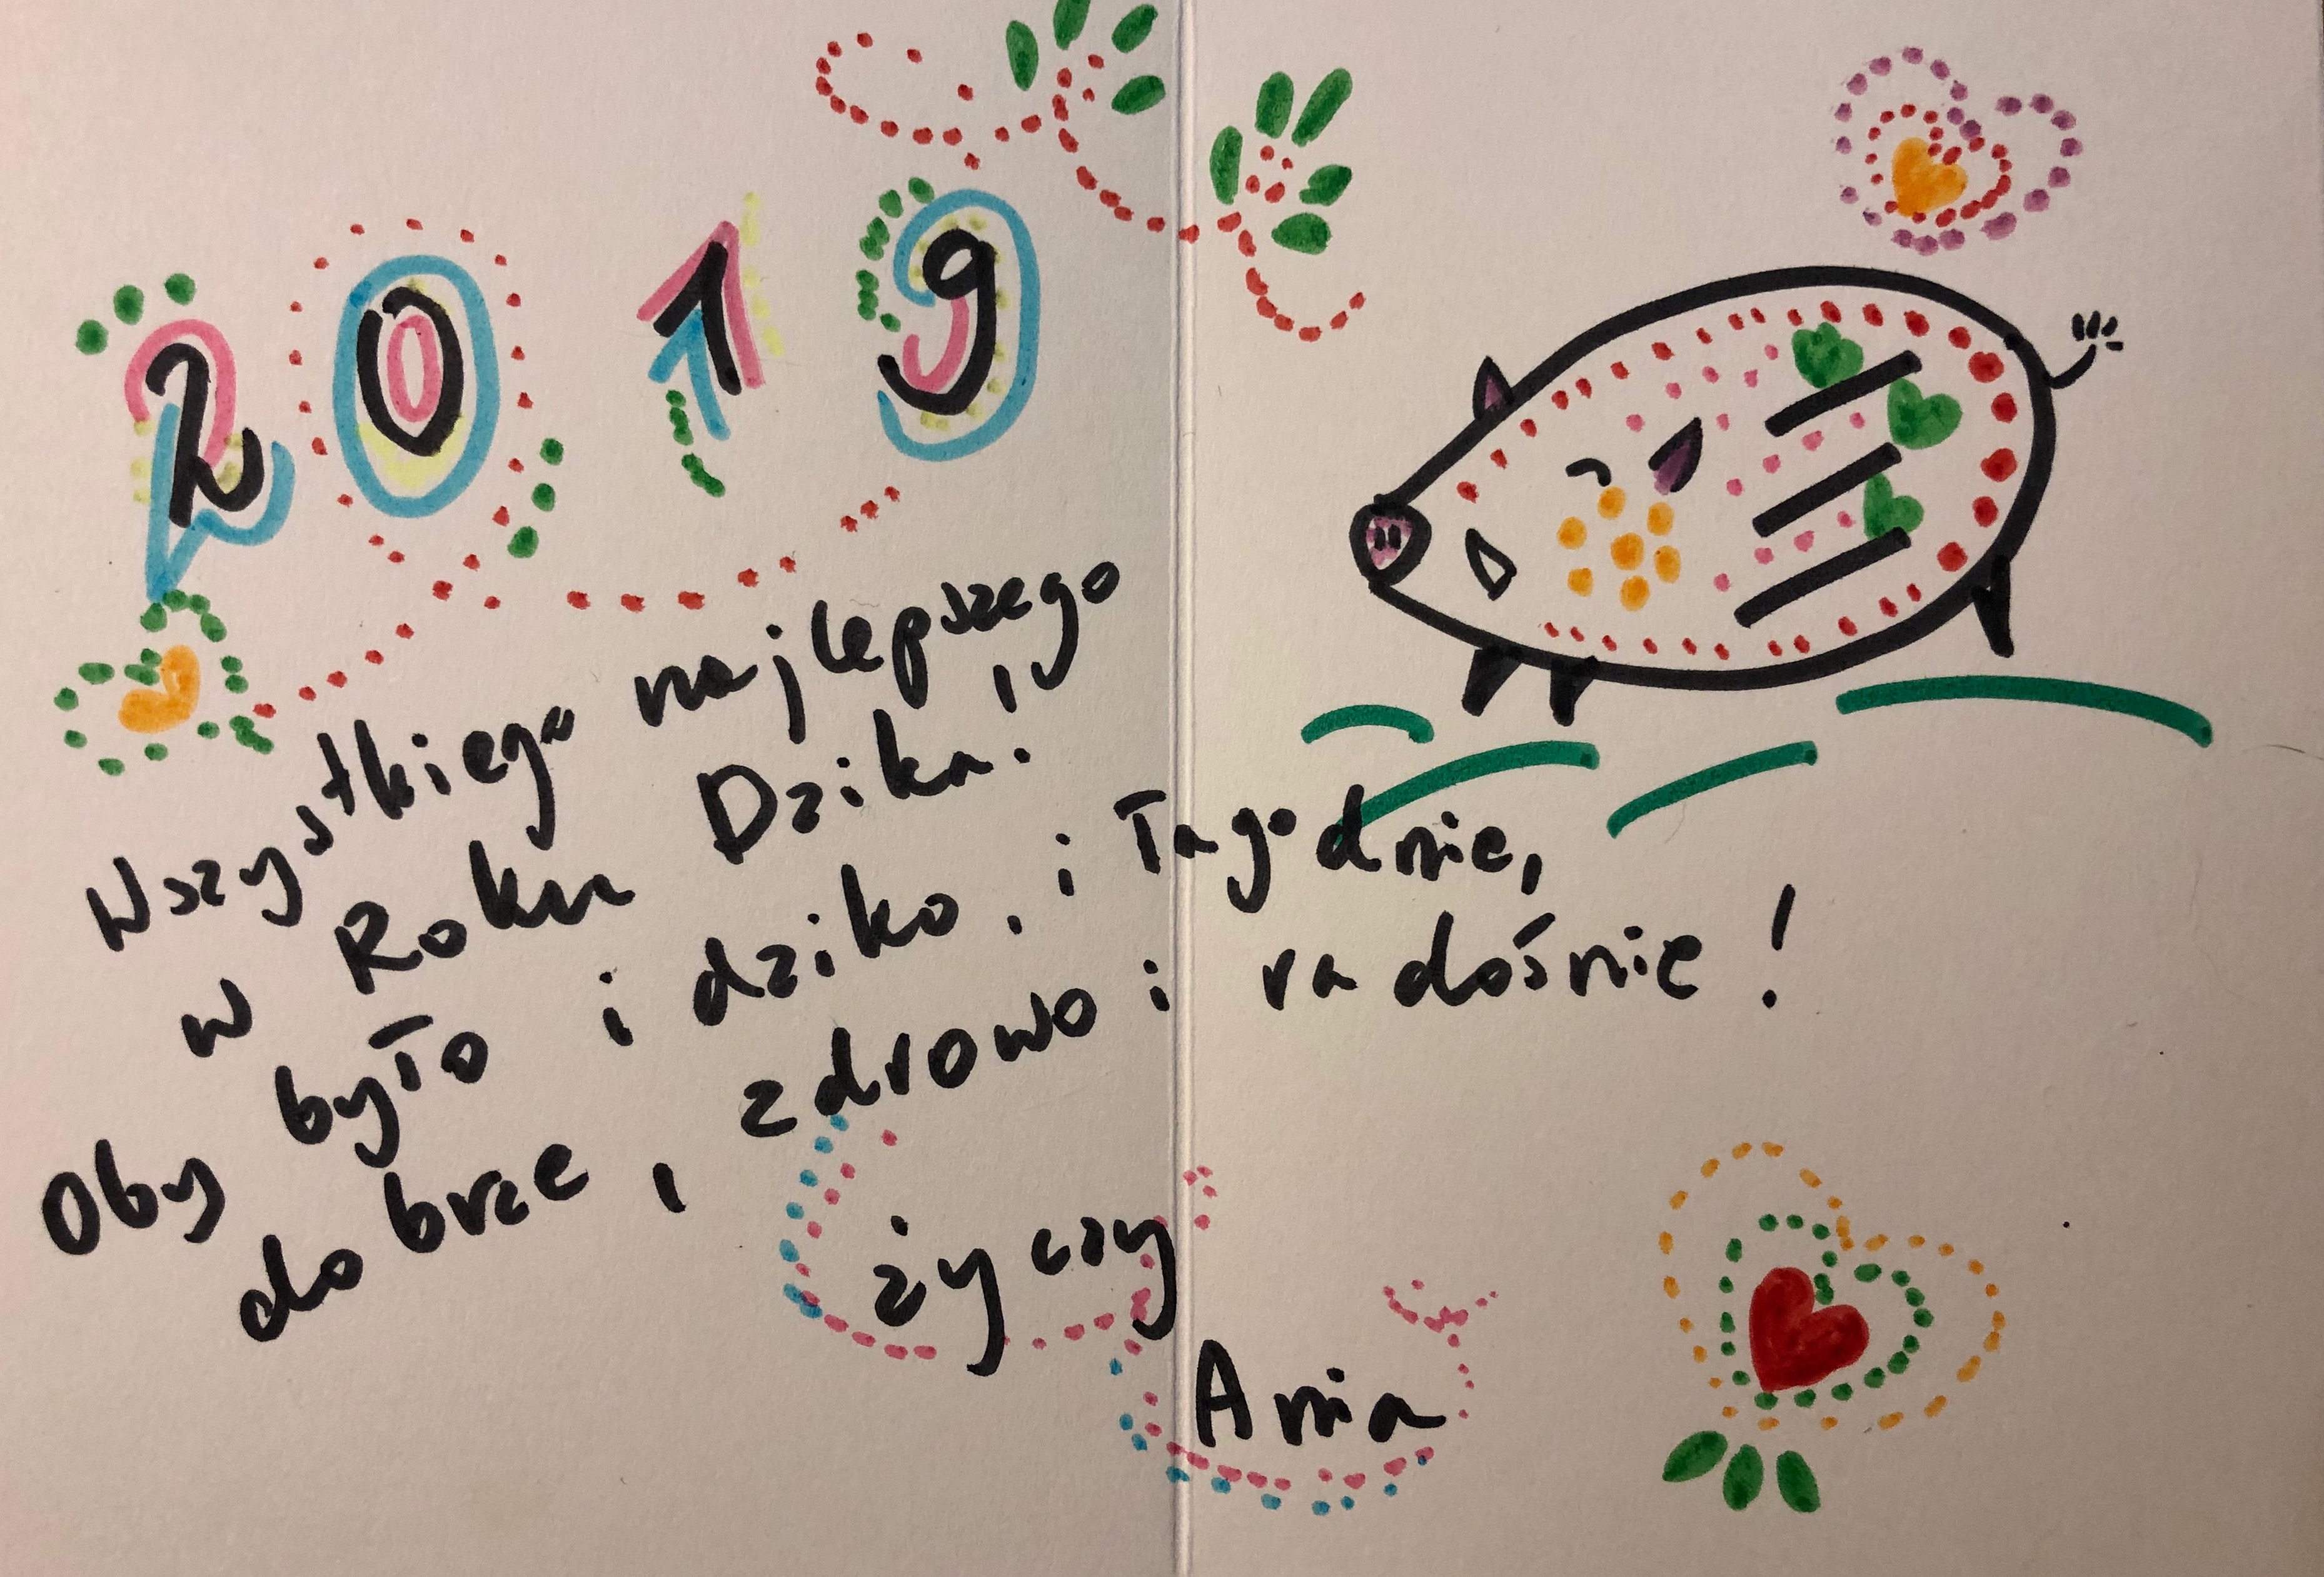 2019
Wszystkiego najlepszego
w Roku Dzika!
Oby było i dziko, i łagodnie,
dobrze, zdrowo i radośnie!
życzy
Ania